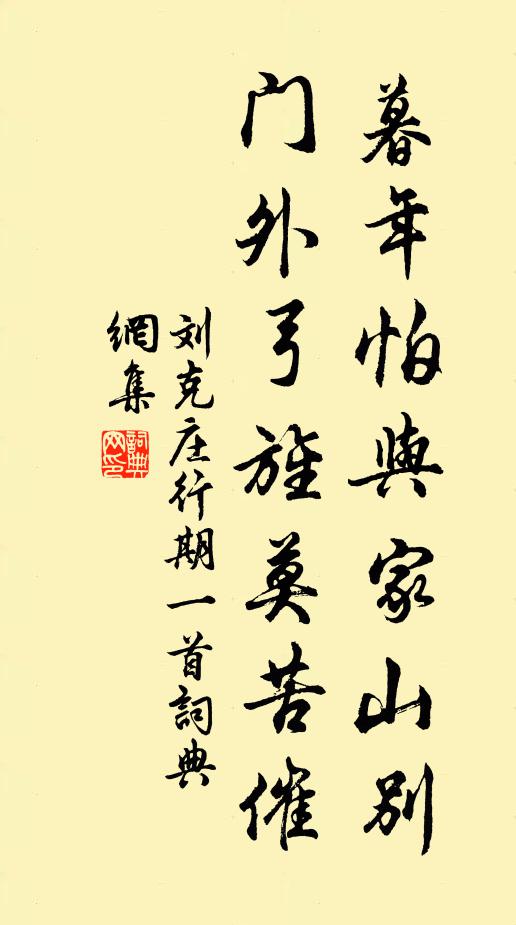 暮年怕與家山别
门外弓旌莫苦催
刘克庄行期一首詞典
網集
詞典网印